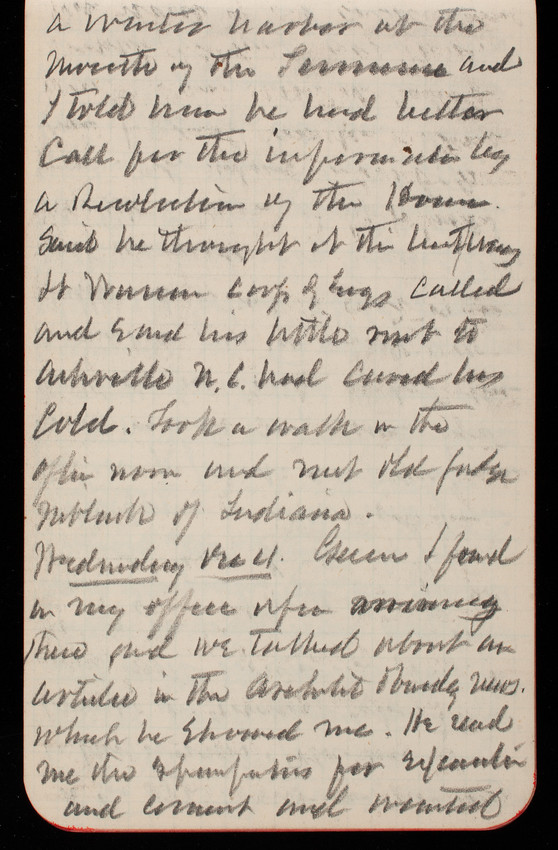 a winter harbor at the
mouth of the and
I told him he had better
Call for the information by
a Resolution of the House.
Said he thought of this
Lt Corps of Engs called
and said his little visit to
Asheville N.C. had cured his
Cold. Took a walk in the
after noon and met old Judge
of Indiana.
Wednesday Dec 4. I found
in my office upon arriving
there and we talked about an
article in the news.
which he showed me. He read
me the for
and cement and wanted